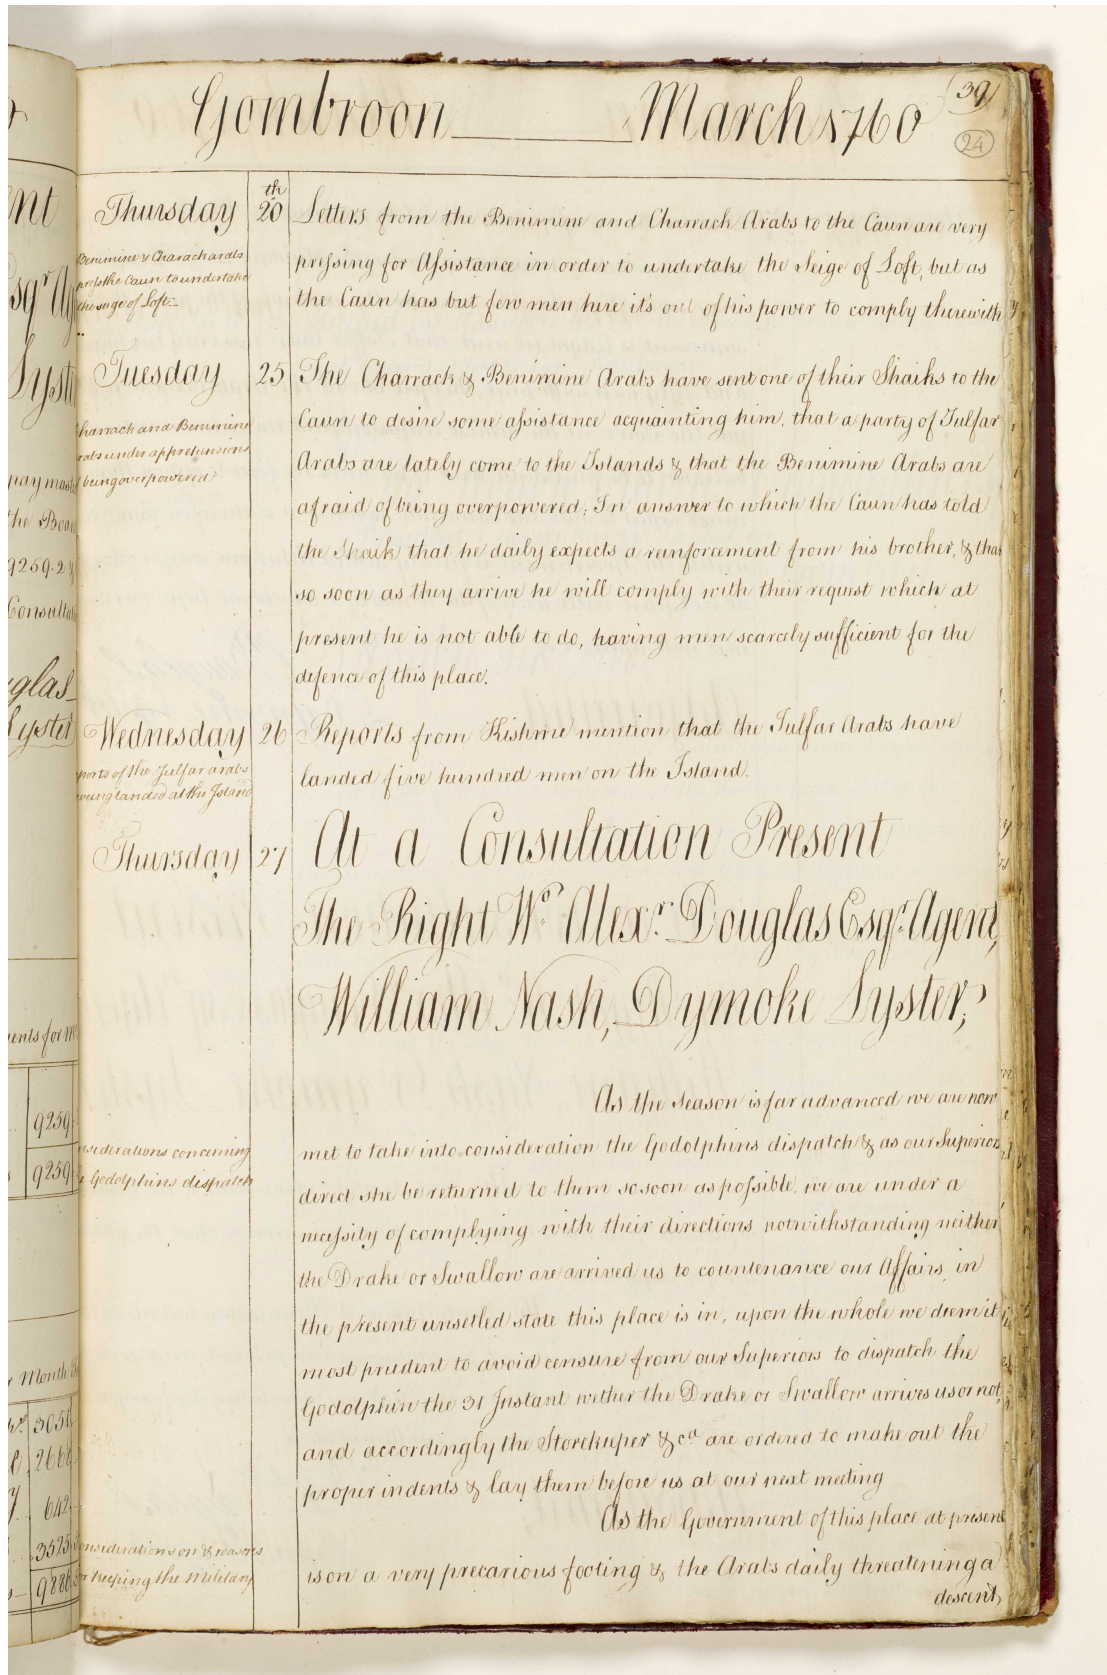 Gombroon March 1760
39
24
Thursday
20th
Benimine & Charach arabs
press the Caun to undertake
the seige of Loft.
Letters from the Benimine and Charrack Arabs to the Caun are very
pressing for Assistance in order to undertake the Seige of Loft, but as
the Caun has but few men here it's out of his power to comply therewith
Tuesday
25
harrach and Benimine
rabs under apprehensions
being overpowered
The Charrack & Benimine Arabs have sent one of their Shaiks to the
Caun to desire some assistance acquainting him, that a party of Julfar
Arabs are lately come to the Islands & that the Benimine Arabs are
afraid of being overpowered; In answer to which the Caun has told
the Shaik that he daily expects a reinforcement from his brother, & that
so soon as they arrive he will comply with their request which at
present he is not able to do, having men scarcely sufficient for the
defence of this place.
Wednesday
26
ports of the Julfar arabs
being landed at the Island
Reports from Kishme mention that the Julfar Arabs have
landed five hundred men on the Island.
Thursday
27
At a Consultation Present
The Right Wo. Alexr. Douglas Esqr. Agent,
William Nash, Dymoke Lyster;
nsiderations concerning
e Godolphins dispatch
As the Season is far advanced we are now
met to take into consideration the Godolphins dispatch & as our Superiors
direct she be returned to them so soon as possible, we are under a
necessity of complying with their directions notwithstanding neither
the Drake or Swallow are arrived us to countenance our Affairs, in
the present unsetled state this place is in, upon the whole we deem it
most prudent to avoid censure from our Superiors to dispatch the
Godolphin the 31 Instant wether the Drake or Swallow arrives us or not,
and accordingly the Storekeeper &ca. are ordered to make out the
proper indents & lay them before us at our next meeting
onsiderations on & reasons
or keeping the Military
As the Government of this place at present
is on a very precarious footing & the Arabs daily threatening a
descent,